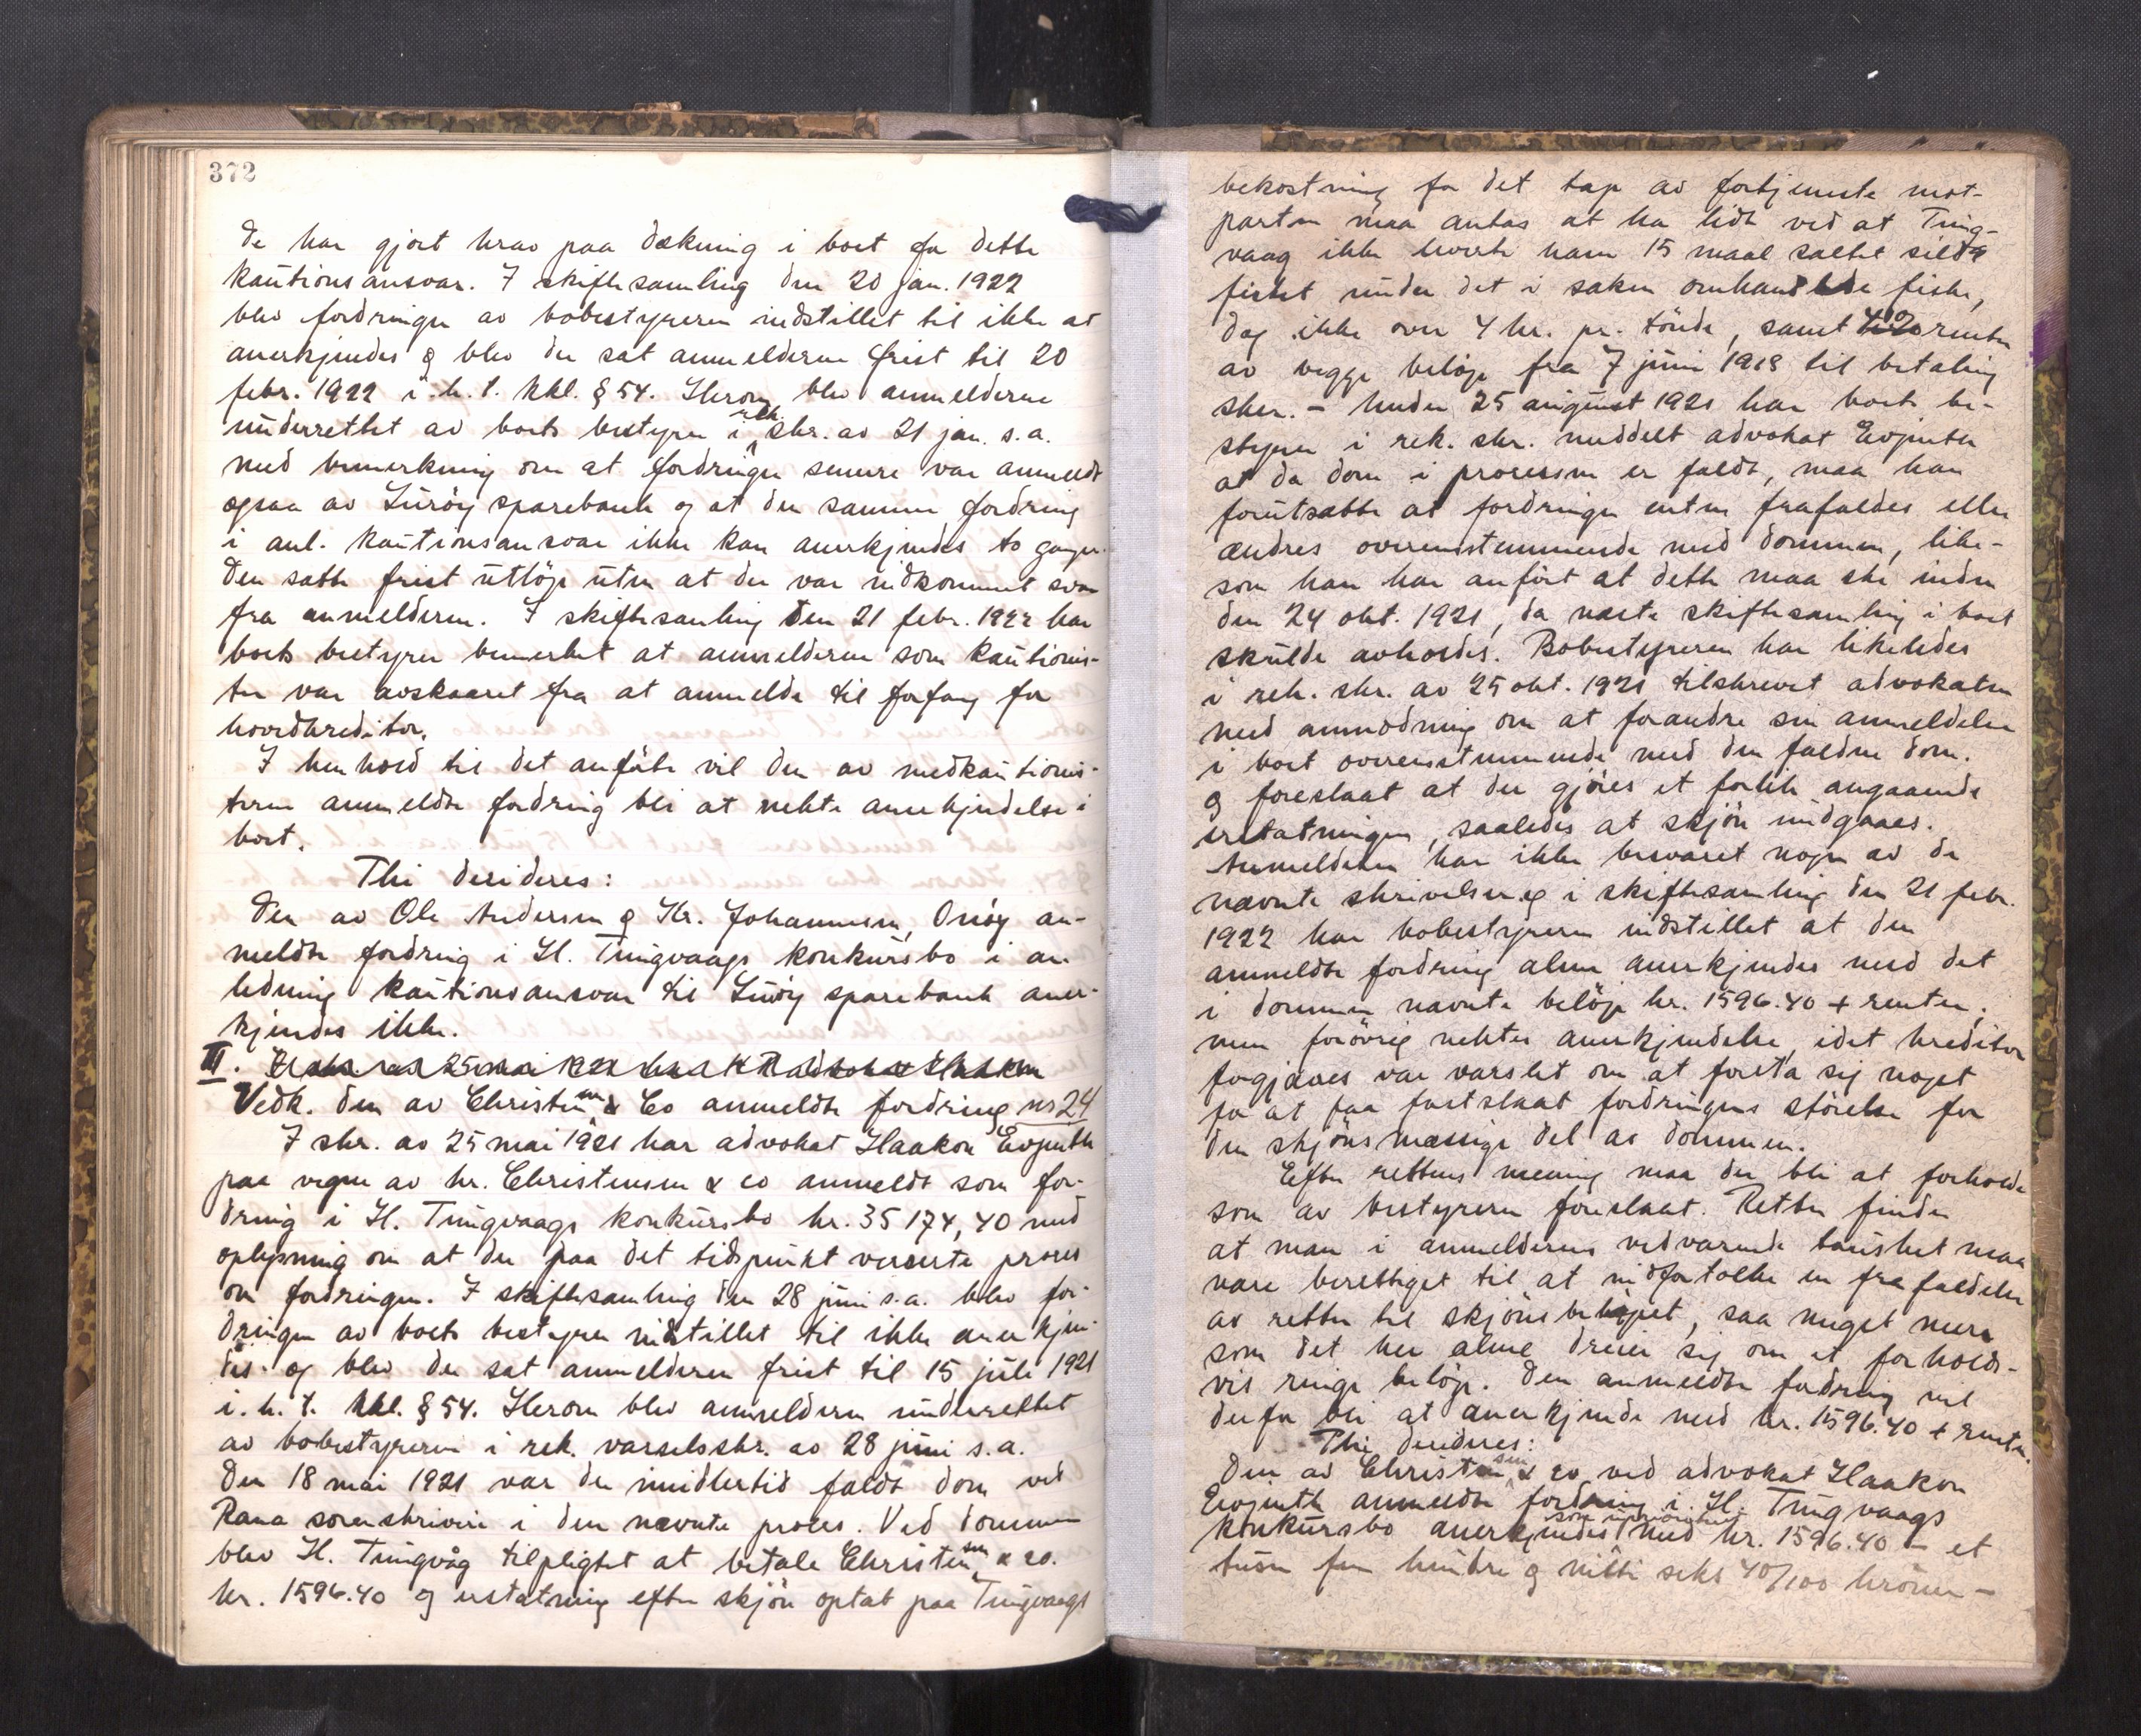 372
de har gjort krav paa dækning i boet for dette
kautionsansvar. I skiftesamling den 20 jan. 1922
blev fordringen av bobestyreren indstillet til ikke at
anerkjendes & blev der sat anmelderne frist til 20
febr. 1922 i. h. t. kkl. § 54. Herom blev anmelderne
underrettet av boets bestyrer i rek. skr. av 21 jan. s.a.
med bemerkning om at fordringen senere var anmeldt
ogsaa av Lurøy sparebank og at den samme fordring
i anl. kautionsansvar ikke kan anerkjendes to ganger.
Den satte frist utløp uten at der var indkommet svar
fra anmelderen. I skiftesamling den 21 febr. 1922 har
boets bestyrer bemerket at anmelderne som kautionis-
ter var avskaaret fra at anmelde til forfang for
hovedkreditor.
I henhold til det anførte vil den av medkautionis-
terne anmeldte fordring bli at nekte anerkjendelse i
boet.
Thi decideres:
Den av Ole Andersen & Kr. Johannesen, Onøy an-
meldte fordring i H. Tungvaags konkursbo i an-
ledning kautionsansvar til Lurøy sparebank aner-
kjendes ikke.
III.
Vedk. den av Christensen & Co anmeldte fordring nr 24
I skr. av 25 mai 1921 har advokat Haakon Evjenth
paa vegne av hr. Christensen & co anmeldt som for-
dring i H. Tungvaags konkursbo kr. 35 174,40 med
oplysning om at der paa det tidspunkt verserte proces
om fordringen. I skiftesamling den 28 juni s.a. blev for-
dringen av boets bestyrer indstillet til ikke anerkjen-
des og blev der sat anmelderen frist til 15 juli 1921
i. h. t. kkl. § 54. Herom blev anmelderen underrettet
av bobestyreren i rek. varselsskr. av 28 juni s.a.
Den 18 mai 1921 var der imidlertid faldt dom ved
Rana sorenskriveri i den nævnte proces. Ved dommen
blev H. Tungvåg tilpligtet at betale Christensen & co.
kr. 1596.40 og erstatning efter skjøn optat paa Tungvaags
bekostning for det tap av fortjeneste mot-
parten maa antas at ha lidt ved at Tung-
vaag ikke leverte ham 15 maal saltet sild
fisket under det i saken omhandlede fiske,
dog ikke over 4 kr. pr. tønde, samt renter
av begge beløp fra 7 juni 1918 til betaling
sker. - Under 25 august 1921 har boets be-
styrer i rek. skr. meddelt advokat Evjenth
at da dom i processen er faldt, maa han
forutsætte at fordringen enten frafaldes eller
ændres overensstemmende med dommen, like-
som han har anført at dette maa ske inden
den 24 okt. 1921, da næste skiftesamling i boet
skulde avholdes. Bobestyreren har likeledes
i rek. skr. av 25 okt. 1921 tilskrevet advokaten
med anmodning om at forandre sin anmeldelse
i boet overensstemmende med den faldne dom.
og foreslaat at der gjøres et forlik angaaende
erstatningen, saaledes at skjøn undgaaes.
Anmelderen har ikke besvaret nogen av de
nævnte skrivelser og i skiftesamling den 21 febr.
1922 har bobestyreren indstillet at den
anmeldte fordring alene anerkjendes med det
i dommen nævnte beløp kr. 1596.40 + renter,
men forøvrig negtes anerkjendelse, idet kreditor
forgjæves var varslet om at foreta sig noget
for at faa fastslaat fordringens størelse for
den skjønsmæssige del av dommen.
Efter rettens mening maa der bli at forholde
som av bestyreren foreslaat. Retten finder
at man i anmelderens vedvarende taushet maa
være berettiget til at indfortolke en frafaldelse
av retten til skjønsbeløpet, saa meget mere
som det her alene dreier sig om et forholds-
vis ringe beløp. Den anmeldte fordring vil
derfor bli at anerkjende med kr. 1596.40 + renter.
Thi decideres:
Den av Christensen & co ved advokat Haakon
Evjenth anmeldte fordring i H. Tungvaags
konkursbo anerkjendes som uprioritert med kr. 1596.40 - et
tusen fem hundre og nitti seks 40/100 kroner -